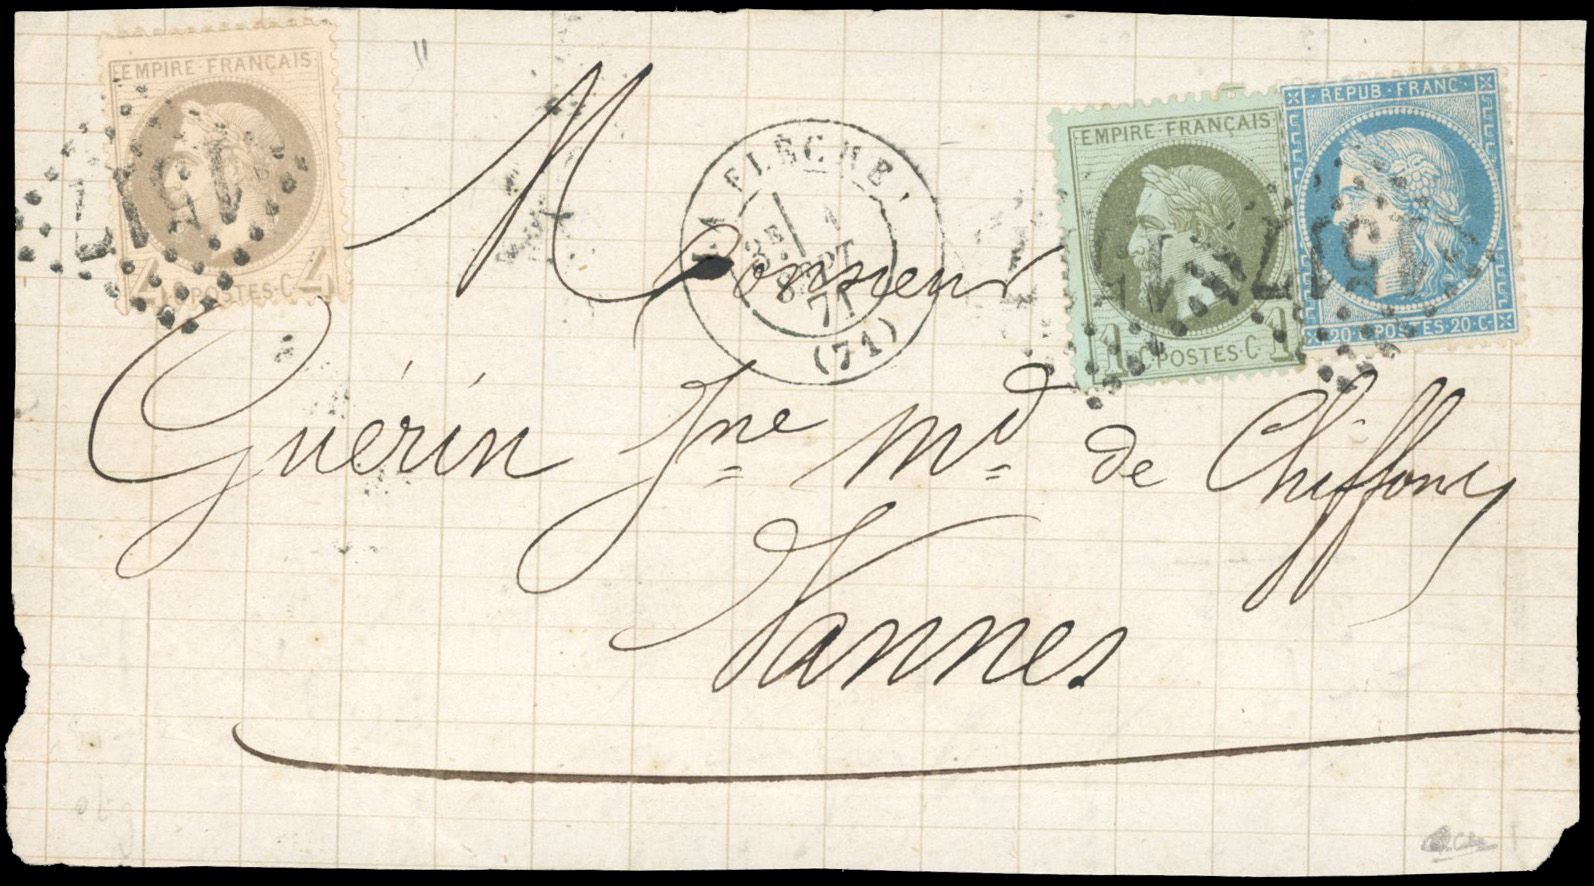 EMPIRE·FRANÇAIS
4 C POSTES·C 4
1517
LA FLÈCHE
3E 1
SEPT
71
(71)
EMPIRE·FRANÇAIS
1 C POSTES·C 1
1517
REPUB·FRANC·
20·C·POSTES·20·C·
1517
Monsieur
Guérin Jne Md de Chiffons
Vannes